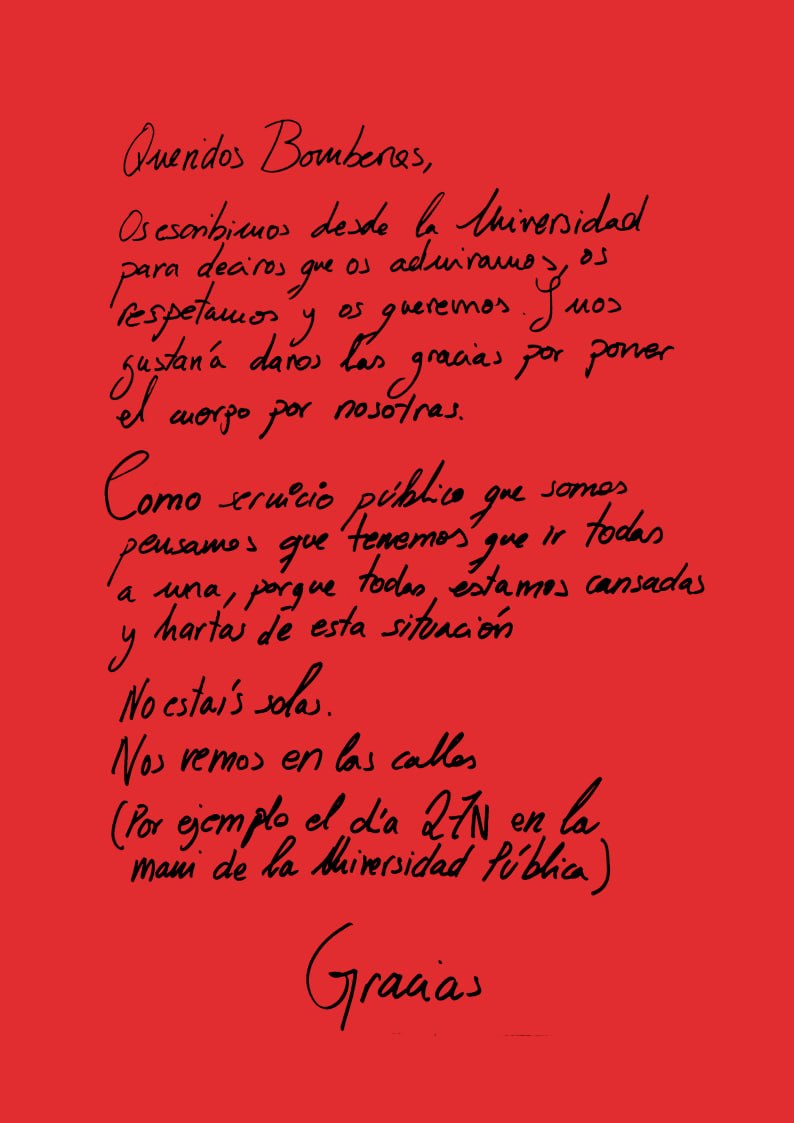 Queridos Bomberos,
Os escribimos desde la Universidad
para deciros que os admiramos, os
respetamos y os queremos. Y nos
gustaría daros las gracias por poner
el cuerpo por nosotras.
Como servicio público que somos
pensamos que tenemos que ir todas
a una, porque todas estamos cansadas
y hartas de esta situación
No estaís solas.
Nos vemos en las calles
(Por ejemplo el día 27N en la
mani de la Universidad Pública)
Gracias